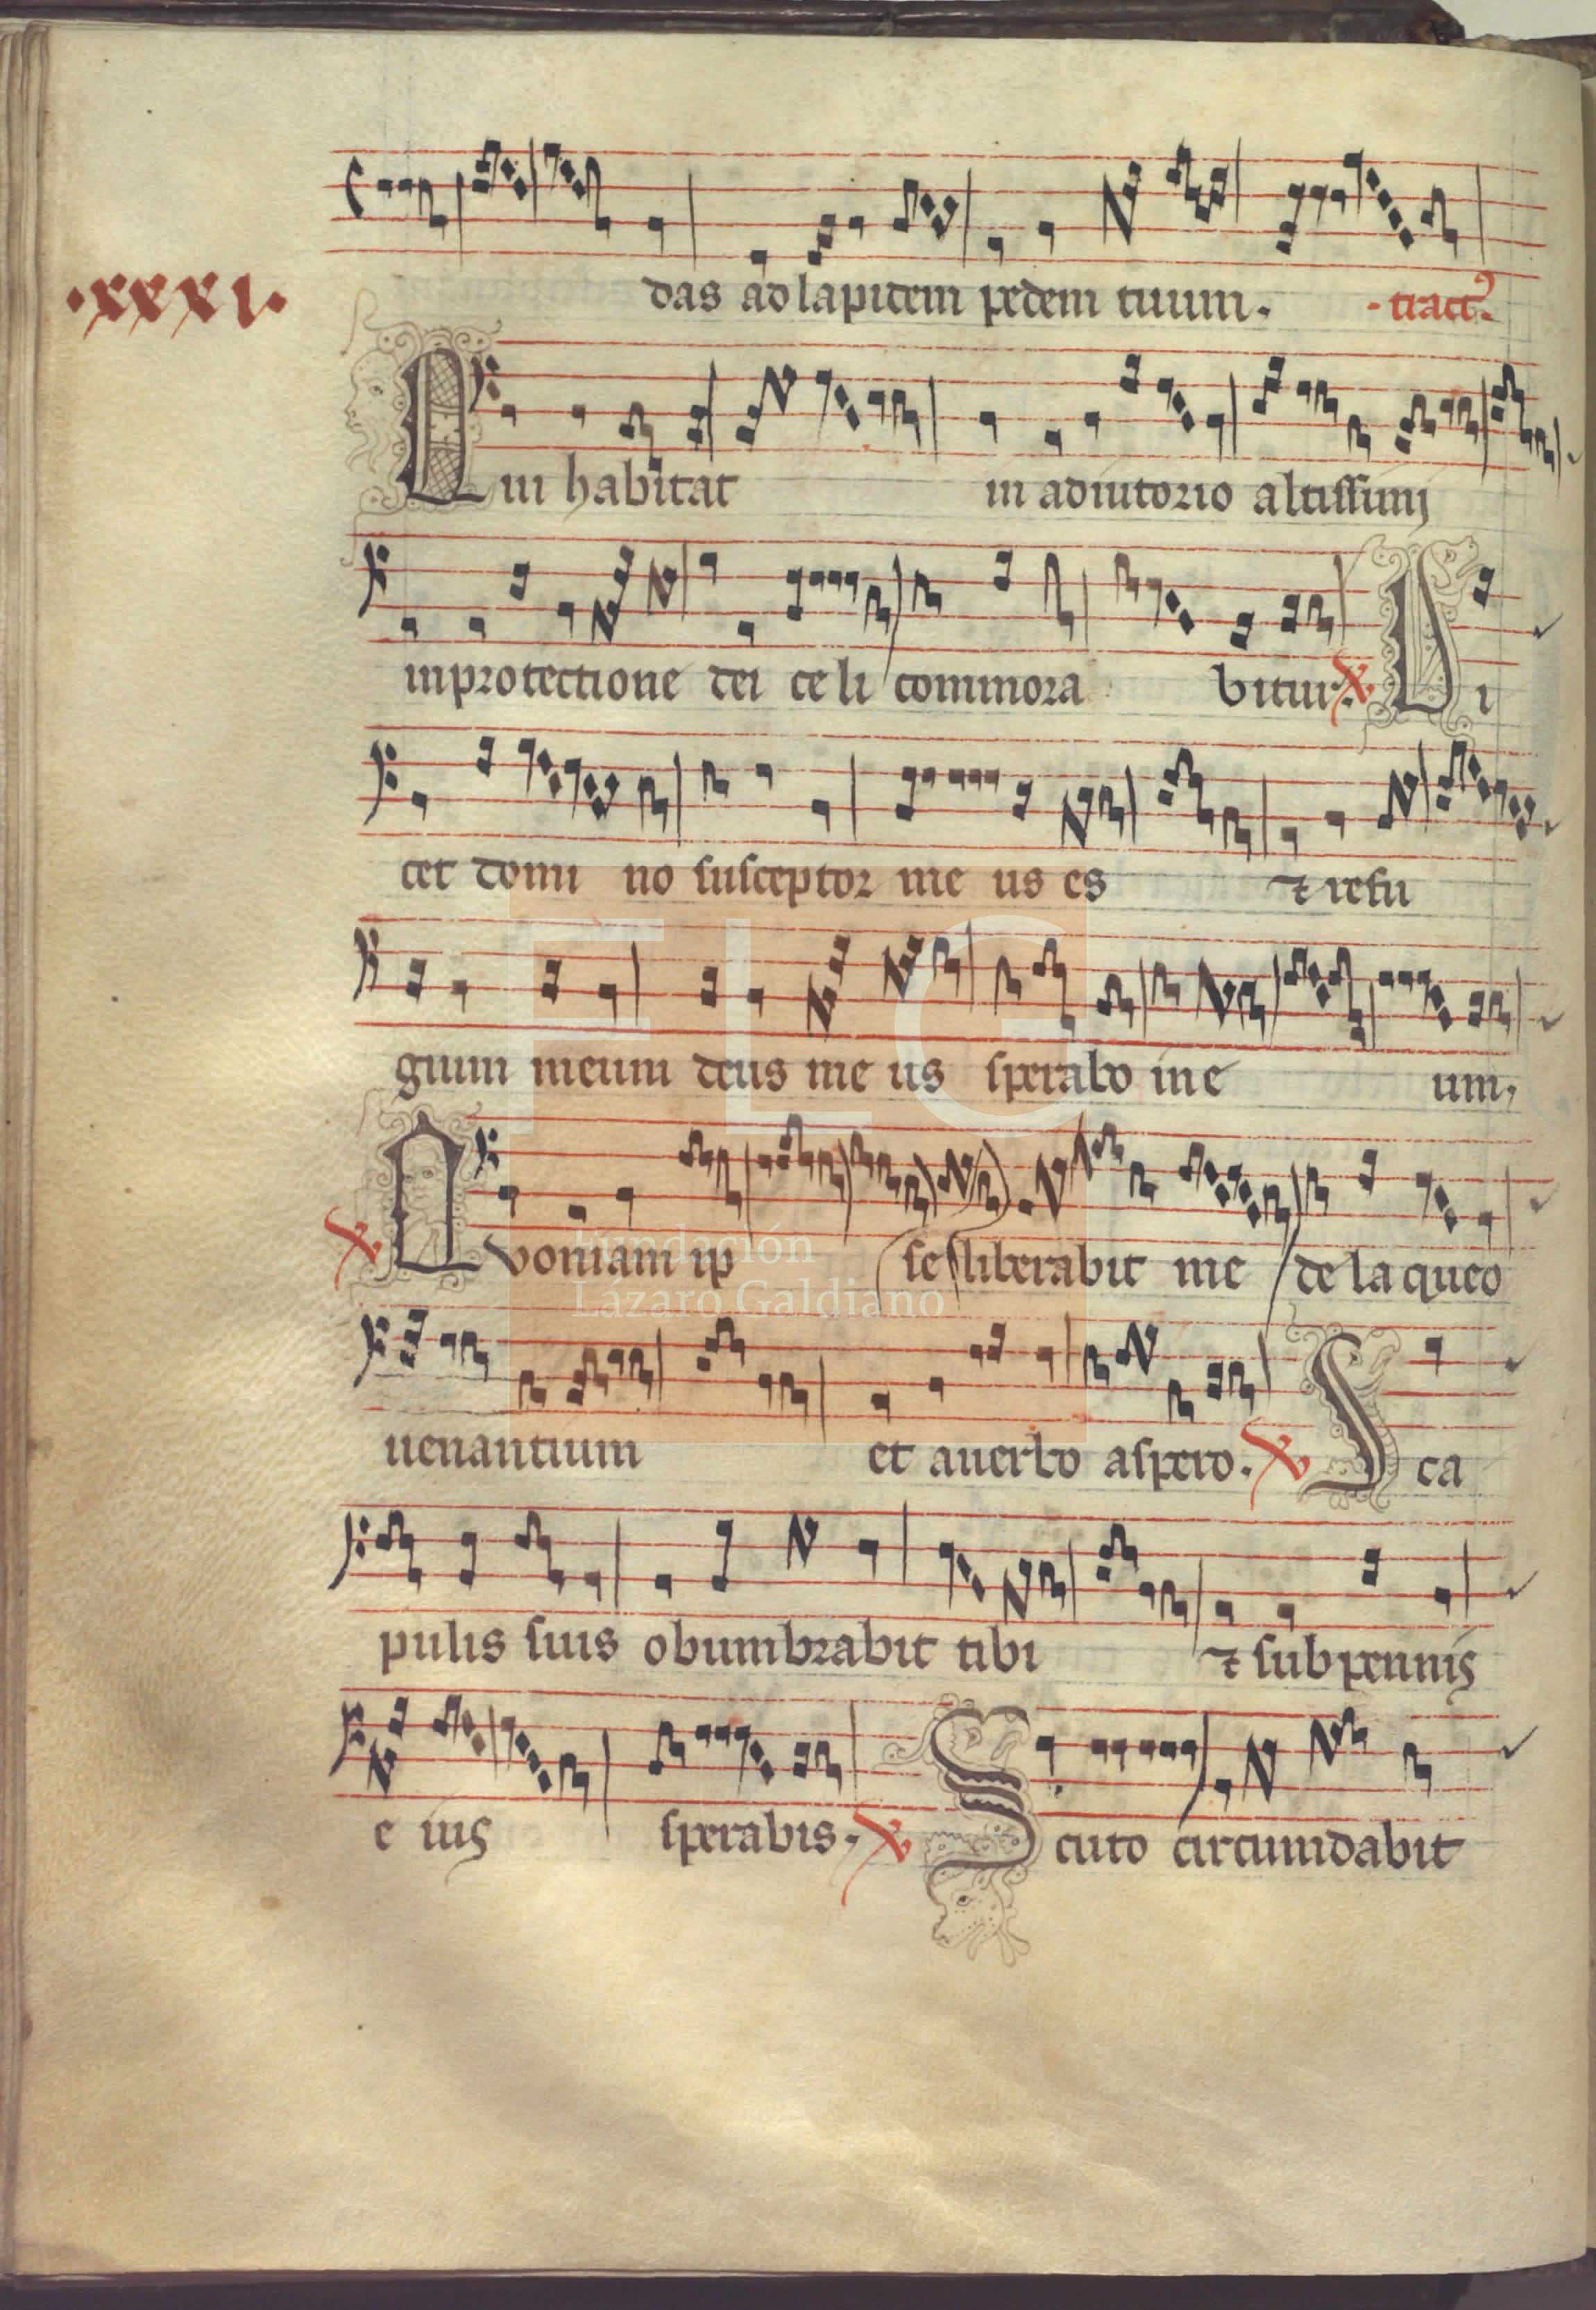 das ad lapidem pedem tuum. ·tract9.
·xxxi·
Qui habitat in adiutorio altissimj
in protectione dei celi commora bitur. Di
cet domi no susceptor me us es ⁊ refu
gium meum deus me us sperabo in e um.
Quoniam ip se liberabit me de la queo
uenantium et a uerbo aspero. Sca
pulis suis obumbrabit tibi ⁊ sub pennis
e ius sperabis. Scuto circumdabit
FLG
Fundación
Lázaro Galdiano